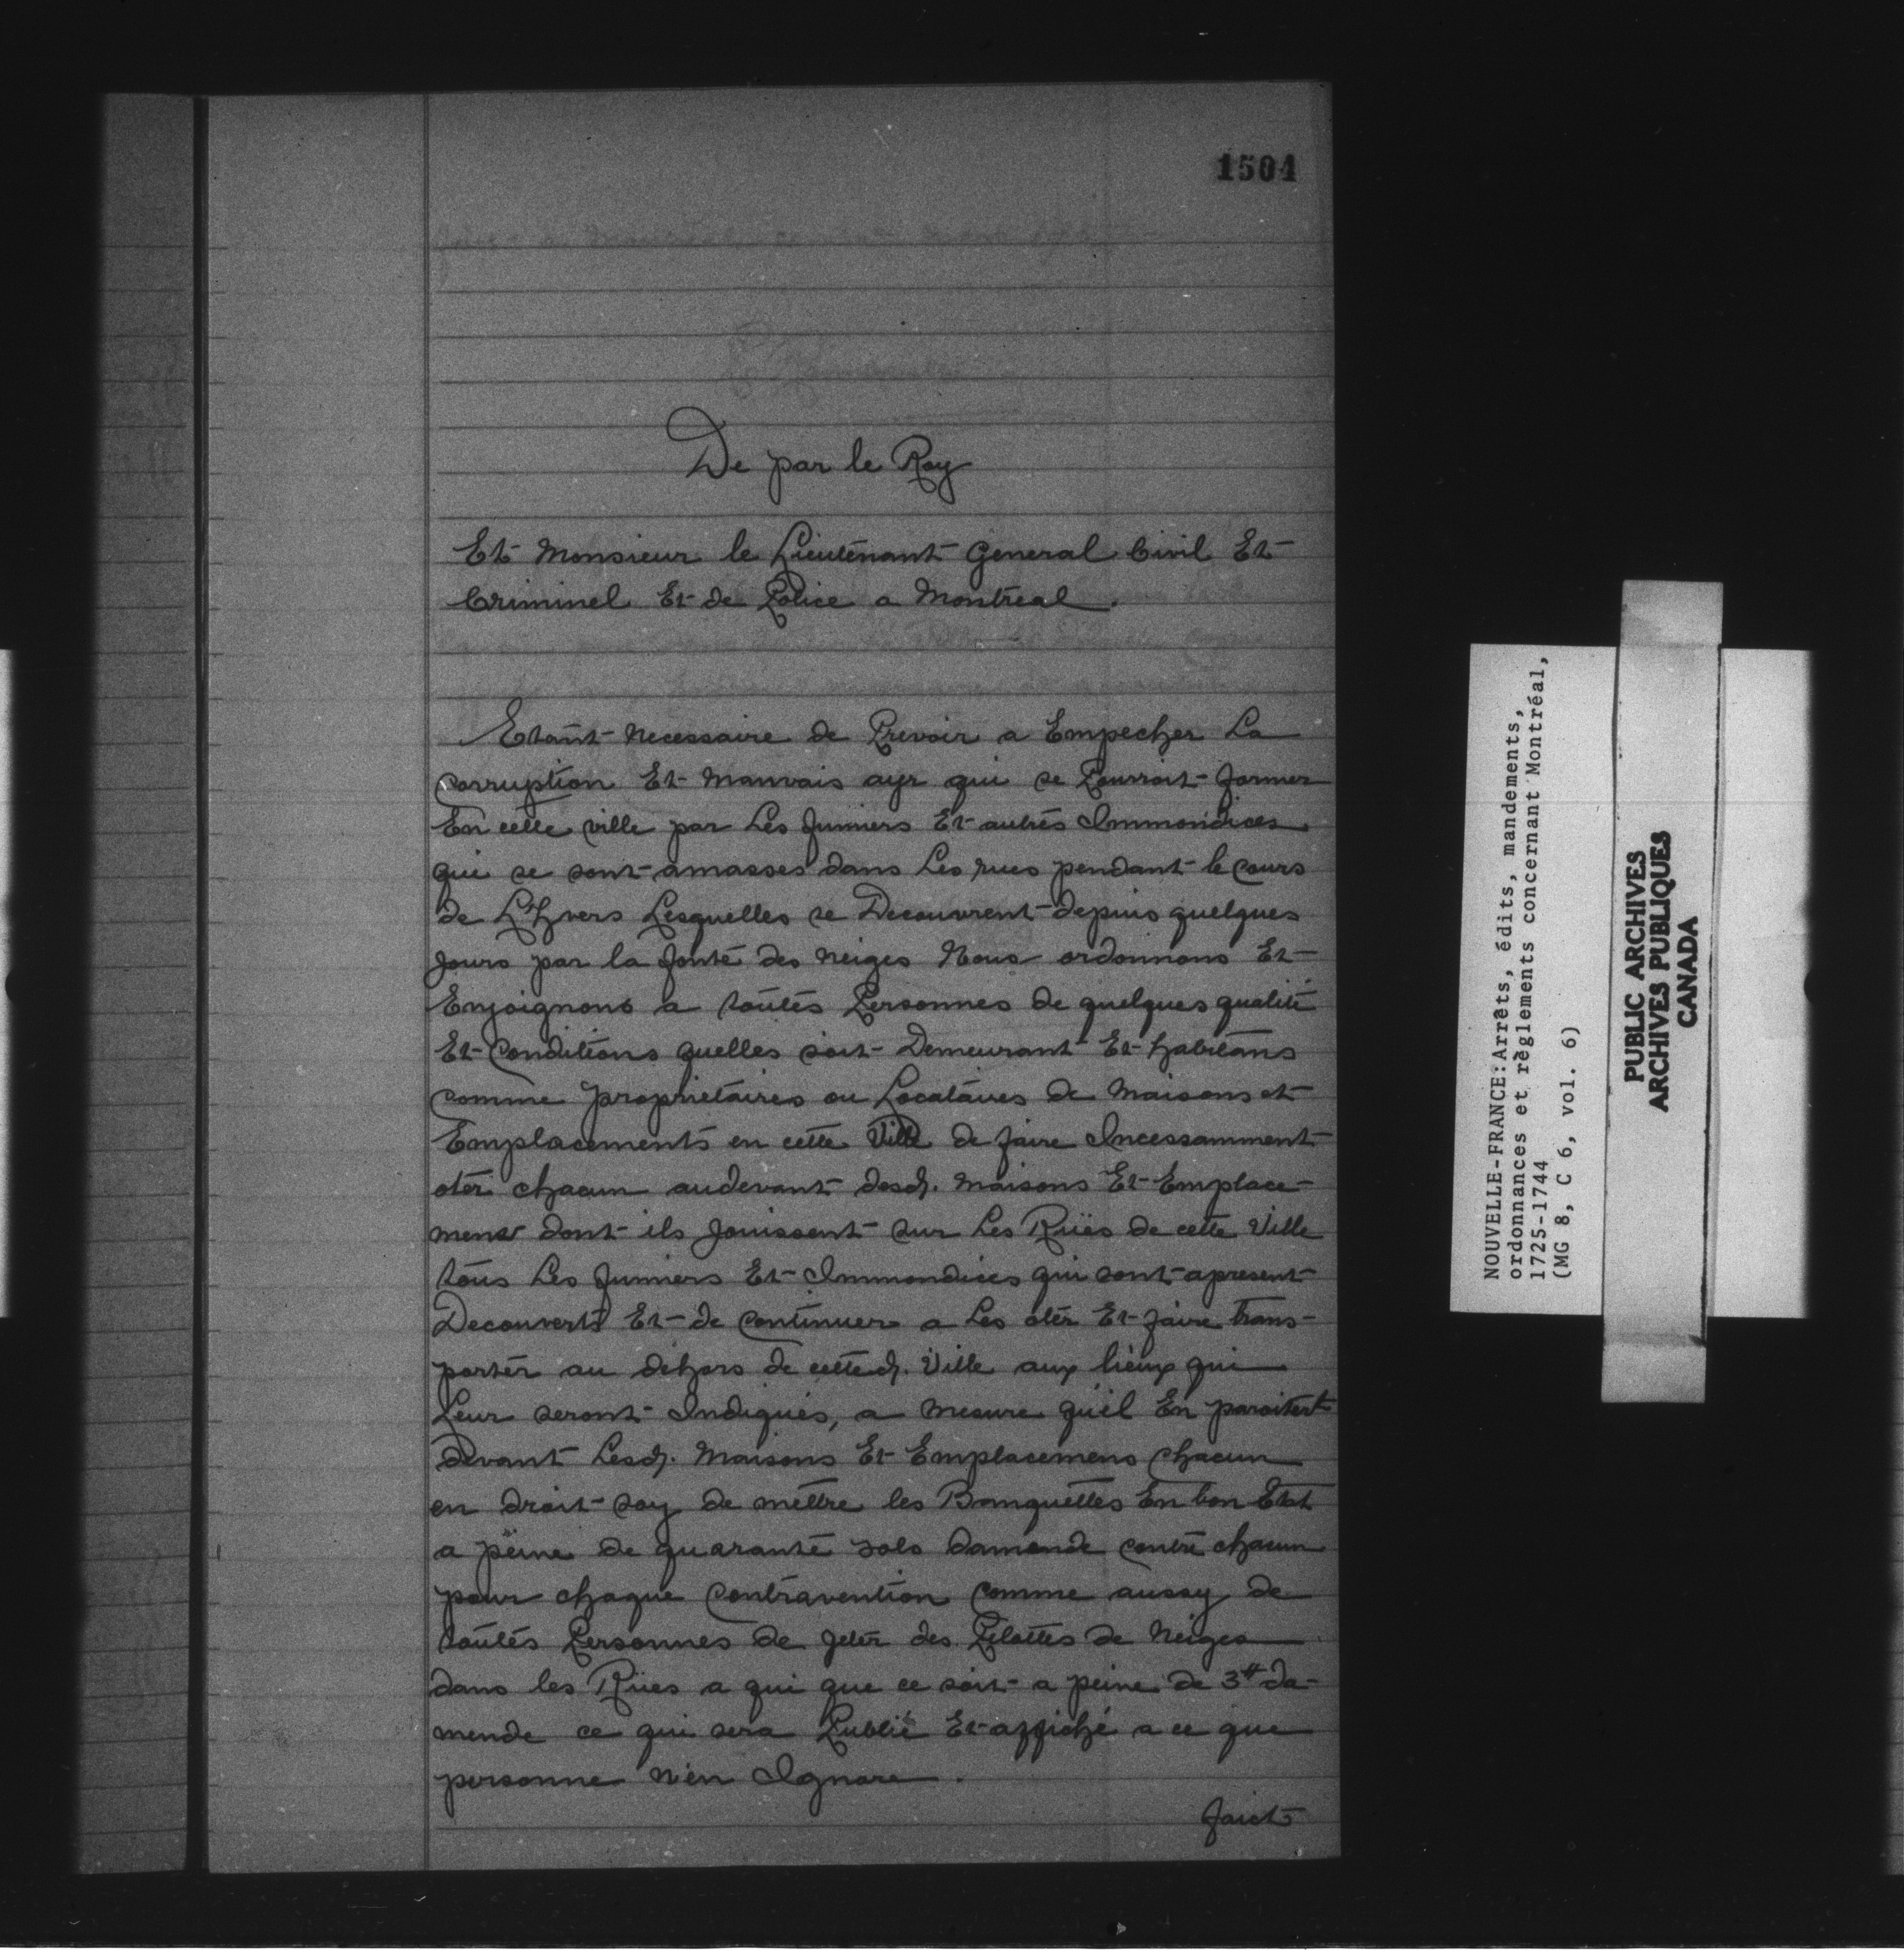 1504
De par le Roy
Et Monsieur le Lieutenant General Civil Et
Criminel Et de Police a Montréal.
Etant necessaire de Prevoir a Empecher La
corruption Et Mauvais ayr qui se Pourroit former
En cette ville par Les fumiers Et autres Immondices
qui se sont amasses dans Les rues pendant le cours
de L'hyvers Lesquelles se Decouvrent depuis quelques
Jours par la fonte des neiges Nous ordonnons Et
Enjoignons a toutes Personnes de quelques qualité
Et Conditions quelles soit Demeurant Et habitans
comme propriétaires ou Locataires de Maisons et
Emplacements en cette Ville de faire Incessamment
oter chacun audevant desd. Maisons Et Emplace-
mens dont ils Jouissent sur Les Rües de cette Ville
tous Les fumiers Et Immondices qui sont apresent
Decouverts Et de continuer a Les oter Et faire trans-
porter au dehors de cetted. Ville aux lieux qui
Leur seront Indiqués, a mesure qu'il En paroitert
devant Lesd. Maisons Et Emplacemens chacun
en droit soy de mettre les Banquettes En bon Etat
a peine de quarante sols damende contre chacun
pour chaque contravention comme aussy de
toutes Personnes de jeter des Pelottes de Neiges
dans les Rües a qui que ce soit a peine de 3# da-
mende ce qui sera Publié Et affiché a ce que
personne n'en Ignore.
faict
NOUVELLE-FRANCE: Arrêts, édits, mandements,
ordonnances et règlements concernant Montréal,
1725-1744
(MG 8, C 6, vol. 6)
PUBLIC ARCHIVES
ARCHIVES PUBLIQUES
CANADA